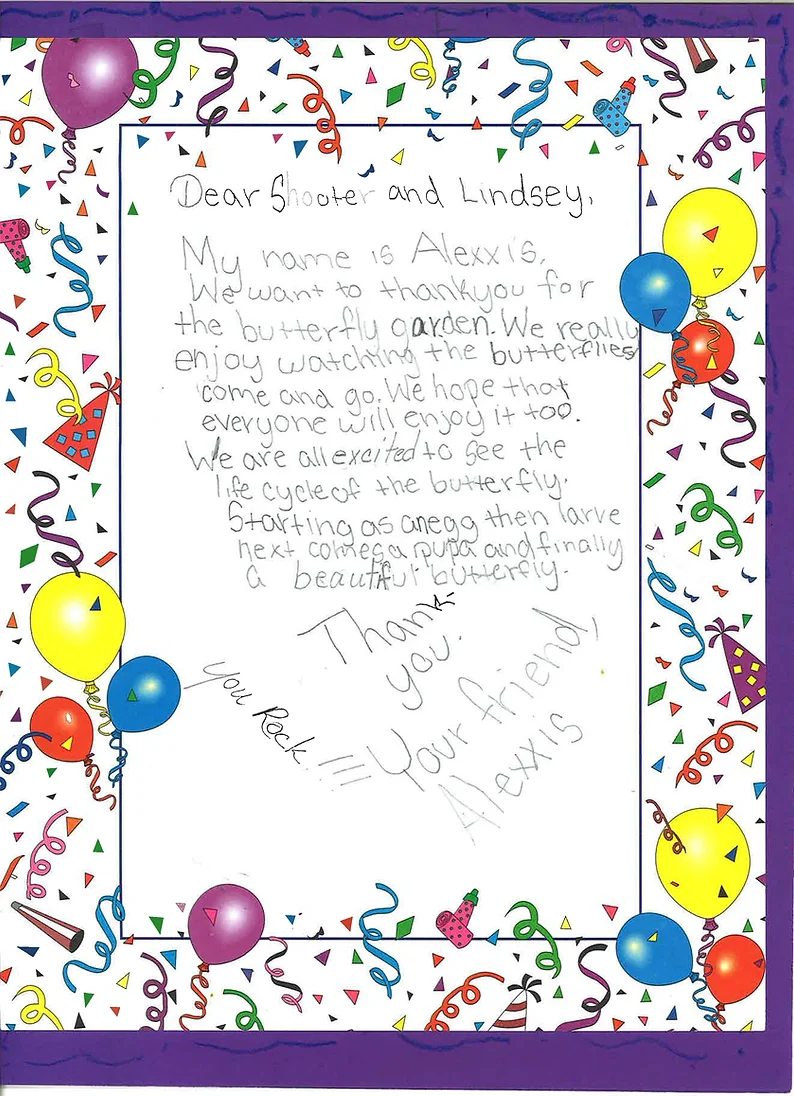 Dear Shooter and Lindsey,
My name is Alexxis.
We want to thankyou for
the butterfly garden. We really
enjoy watching the butterflies
come and go. We hope that
everyone will enjoy it too.
We are all excited to see the
life cycle of the butterfly.
Starting as an egg then larve
next comes a pupa and finally
a beautiful butterfly.
Thank
you.
You Rock!!!
Your friend,
Alexxis